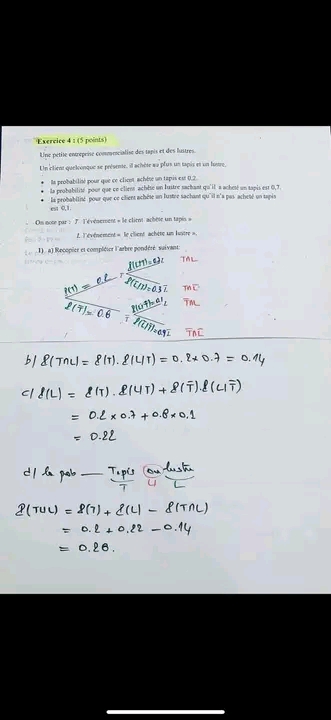 Exercice 4 : (5 points)
Une petite entreprise commercialise des tapis et des lustres.
Un client quelconque se présente, il achète au plus un tapis et un lustre.
• la probabilité pour que ce client achète un tapis est 0,2.
• la probabilité pour que ce client achète un lustre sachant qu'il a acheté un tapis est 0,7.
• la probabilité pour que ce client achète un lustre sachant qu'il n'a pas acheté un tapis
est 0,1.
On note par : T l'événement « le client achète un tapis »
L l'événement « le client achète un lustre ».
1) a) Recopier et compléter l'arbre pondéré suivant:
P(L/T)=0.7 L T∩L
P(T) = 0.2 T
P(L̅/T)=0.3 L̅ T∩L̅
P(L/T̅)=0.1 L T̅∩L
P(T̅)=0.8 T̅
P(L̅/T̅)=0.9 L̅ T̅∩L̅
b/ P(T∩L) = P(T). P(L/T) = 0.2 × 0.7 = 0.14
c/ P(L) = P(T) . P(L/T) + P(T̅).P(L/T̅)
= 0.2 × 0.7 + 0.8 × 0.1
= 0.22
d/ la prob — Tapis ou lustre
T U L
P(TUL) = P(T) + P(L) - P(T∩L)
= 0.2 + 0.22 - 0.14
= 0.28.